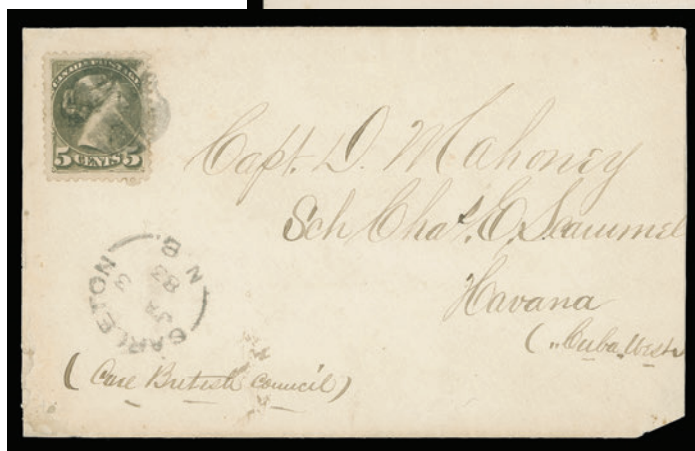 CANADA POSTAGE
5 CENTS 5
Capt. D. Mahoney
Sch Chas. E. Scammel
Havana
(„Cuba„ West
CARLETON
N.B.
JA 3
83
(Care British Council)